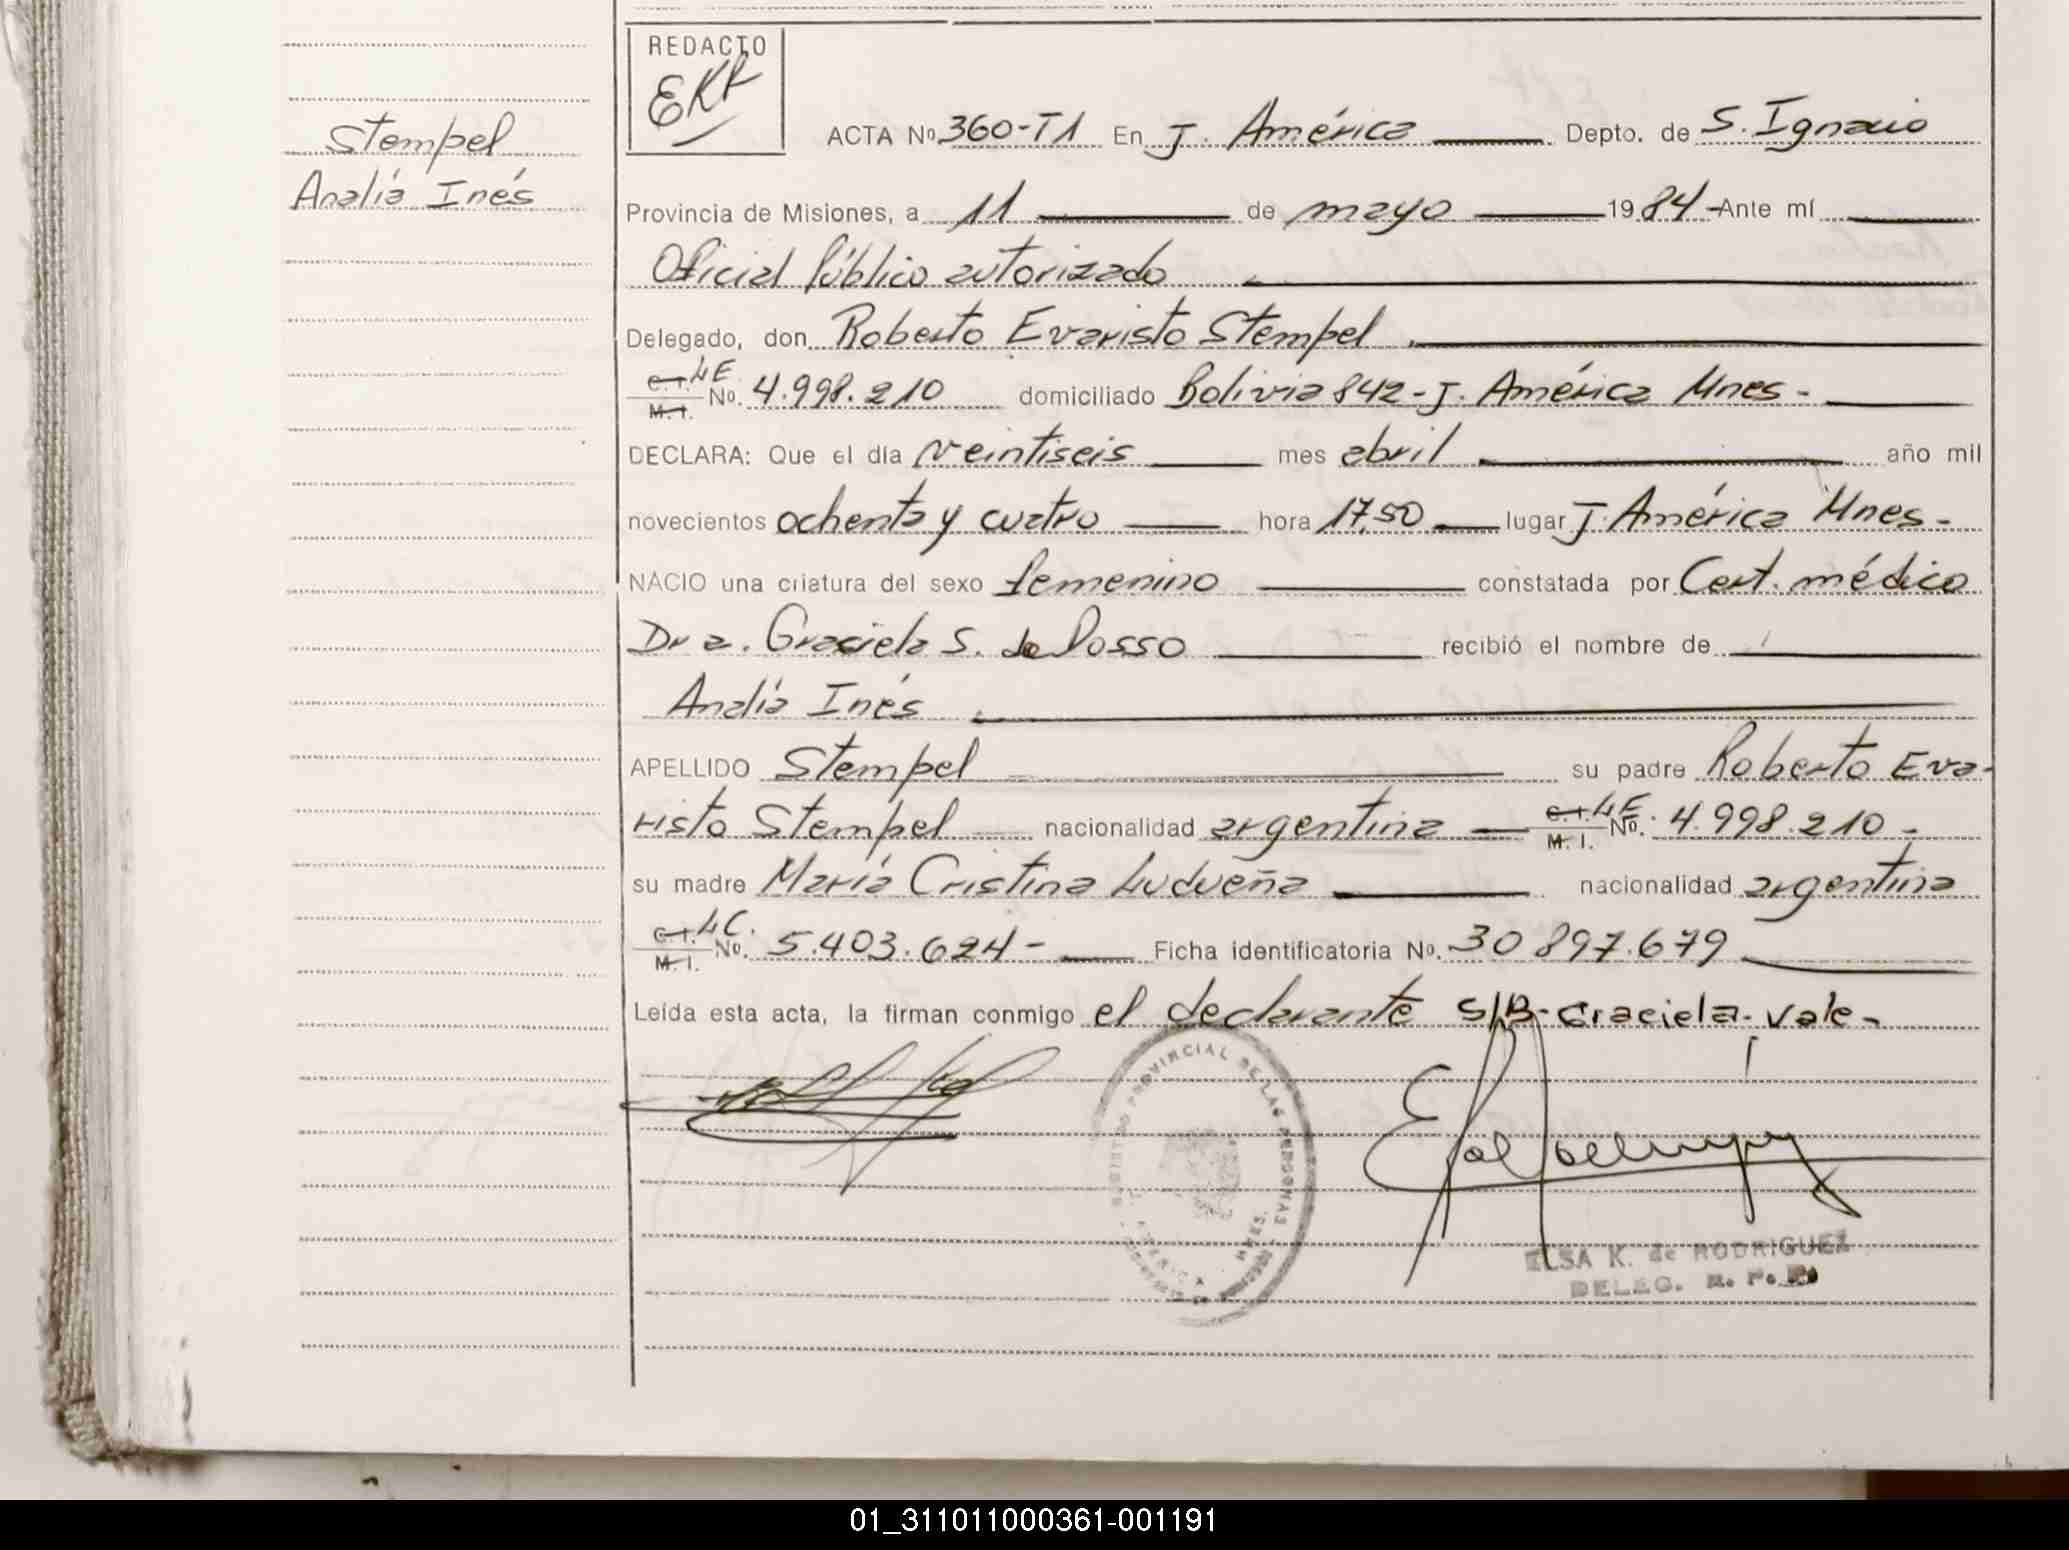 REDACTO
EKR
Stempel
Analía Inés
ACTA No. 360-T1 En J. América Depto. de S. Ignacio
Provincia de Misiones, a 11 de mayo 1984- Ante mí
Oficial Público autorizado
Delegado, don Roberto Evaristo Stempel
C.I. LE M.I. No. 4.998.210 domiciliado Bolivia 842-J. América Mnes-
DECLARA: Que el día veintiseis mes abril año mil
novecientos ochenta y cuatro hora 17,50 lugar J. América Mnes-
NACIO una criatura del sexo femenino constatada por Cert. médico
Dra. Graciela S. de Posso recibió el nombre de
Analía Inés
APELLIDO Stempel su padre Roberto Eva-
risto Stempel nacionalidad argentina C.I. LE. M.I. No. 4.998.210-
su madre María Cristina Ludueña nacionalidad argentina
C.I. LC. M.I. No. 5.403.624- Ficha identificatoria No. 30897.679
Leída esta acta, la firman conmigo el declarante S/B-Graciela-Vale-
PROVINCIAL DE LAS PERSONAS
J. AMERICA MNES.
ELSA K. de RODRIGUEZ
DELEG. R. P.
01_311011000361-001191